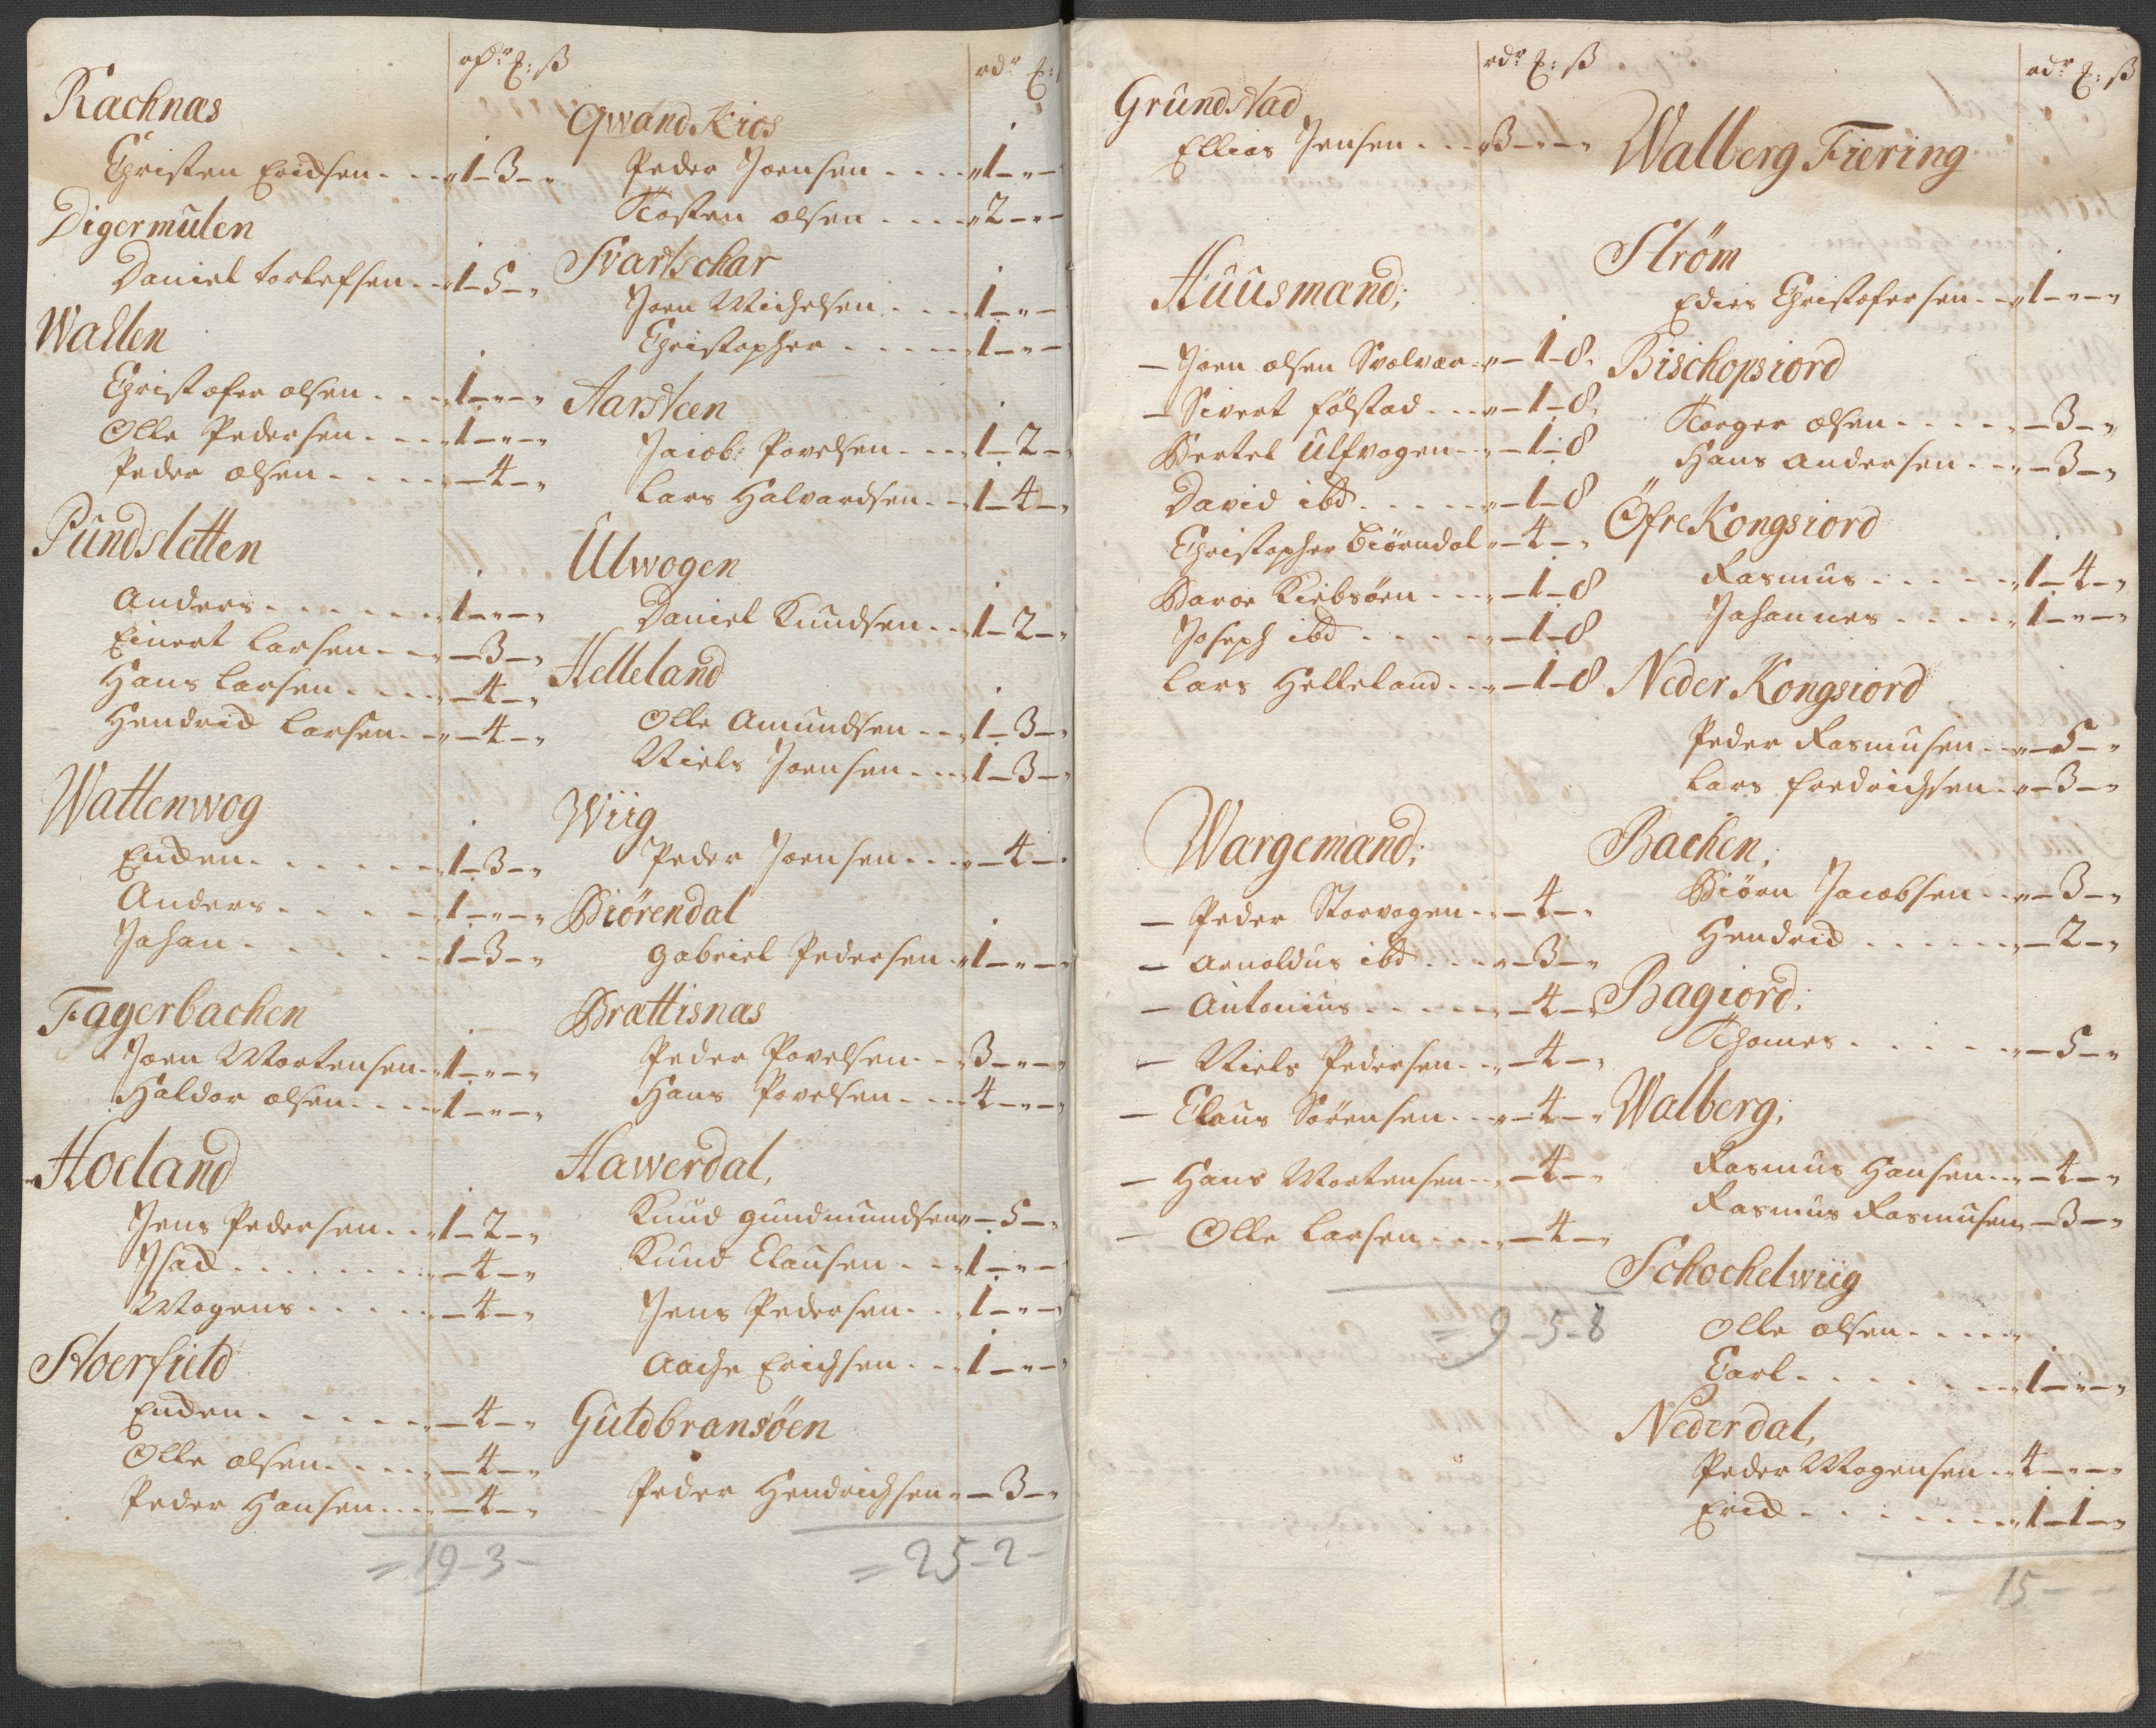 rdr ₰: ß
Rachnæs
Christen Ericksen - - - „ 1 - 3 - „
Digermulen
Daniel torlefsen - - „ 1 - 5 - „
Wallen
Christofer olsen - - - „ 1 - „ - „
Olle Pedersen - - - „ 1 - „ - „
Peder olsen - - - - „ - 4 - „
Pundsletten
Anders - - - - - - „ 1 - „ - „
Einert Larsen - - - „ - 3 - „
Hans Larsen - - - - „ - 4 - „
Hendrick Larsen - - „ - 4 - „
Wattenwog
Encken - - - - - - „ 1 - 3 - „
Anders - - - - - - „ 1 - „ - „
Johan - - - - - - „ 1 - 3 - „
Fagerbachen
Joen Mortensen - „ 1 - „ - „
Haldor olsen - - - „ 1 - „ - „
Hoeland
Jens Pedersen - - „ 1 - 2 - „
Isack - - - - - - - „ - 4 - „
Mogens - - - - - „ - 4 - „
Stoerfield
Encken - - - - - „ - 4 - „
Olle olsen - - - - „ - 4 - „
Peder Hansen - - - „ - 4 - „
= 19 - 3 -
rdr ₰:
Qwand Kios
Peder Joensen - - - - „ 1 - „ -
Tosten olsen - - - - „ 2 - „ -
Svartschar
Joen Michelsen - - - „ 1 - „ -
Christopher - - - - - „ 1 - „ -
Aarsteen
Jacob: Povelsen - - - „ 1 - 2 - „
Lars Halvardsen - - „ 1 - 4 - „
Ulwogen
Daniel Knudsen - - „ 1 - 2 - „
Helleland
Olle Amundsen - - „ 1 - 3 - „
Niels Joensen - - - „ 1 - 3 - „
Wiig
Peder Joensen - - - „ - 4 - „
Biörendal
gabriel Pedersen - „ 1 - „ - „
Brattisnæs
Peder Povelsen - - „ 3 - „ - „
Hans Povelsen - - - „ 4 - „ - „
Hawerdal,
Knud gundmundsen „ - 5 - „
Knud Clausen - - - „ 1 - „ -
Jens Pedersen - - - „ 1 - „ - „
Aache Erichsen - - „ 1 - „ - „
Guldbransöen
Peder Hendrichsen - „ - 3 - „
= 25 - 2 -
rdr ₰: ß
Grundstad
Ellias Jensen - - - „ 3 - „ - „
Huusmænd;
- Joen olsen Svolvær - „ - 1 - 8.
- Sivert Fölstad - - - „ - 1 - 8.
Bertel Ulfvogen - - „ - 1 - 8
David ibd - - - - - „ - 1 - 8
Christopher Biörndal „ - 4 - „
Baroe Kiebsöen - - - „ - 1 - 8
Joseph ibd - - - - - „ - 1 - 8
Lars Helleland - - - „ - 1 - 8
Wargemænd;
- Peder Storvogen - - „ - 4 - „
- Arnoldus ibd - - - „ - 3 - „
- Antonius - - - - - „ - 4 - „
- Niels Pedersen - - „ - 4 - „
- Claus Sörensen - - „ - 4 - „
- Hans Mortensen - - „ - 4 - „
- Olle Larsen - - - „ - 4 - „
= 9 - 5 - 8
rdr ₰: ß
Walberg Fiering
Ström
Edies Christofersen - - „ 1 - „ - „
Bischopsiord
Torger olsen - - - - - „ - 3 - „
Hans Andersen - - - „ - 3 - „
Öfre Kongsiord
Rasmus - - - - - „ 1 - 4 - „
Johannes - - - - „ 1 - „ - „
Neder Kongsiord
Peder Rasmusen - - „ - 5 - „
Lars fredrichsen - „ - 3 - „
Bachen;
Biörn Jacobsen - - „ - 3 - „
Hendrick - - - - - - „ - 2 - „
Bagiord;
Thomes - - - - - „ - 5 - „
Walberg;
Rasmus Hansen - - „ - 4 - „
Rasmus Rasmusen „ - 3 - „
Schochelwiig
Olle olsen - - - - - „
Carl - - - - - - - „ 1 - „ - „
Nederdal,
Peder Mogensen - „ 4 - „ - „
Erick - - - - - - - „ 1 - 1 - „
- 15 - -